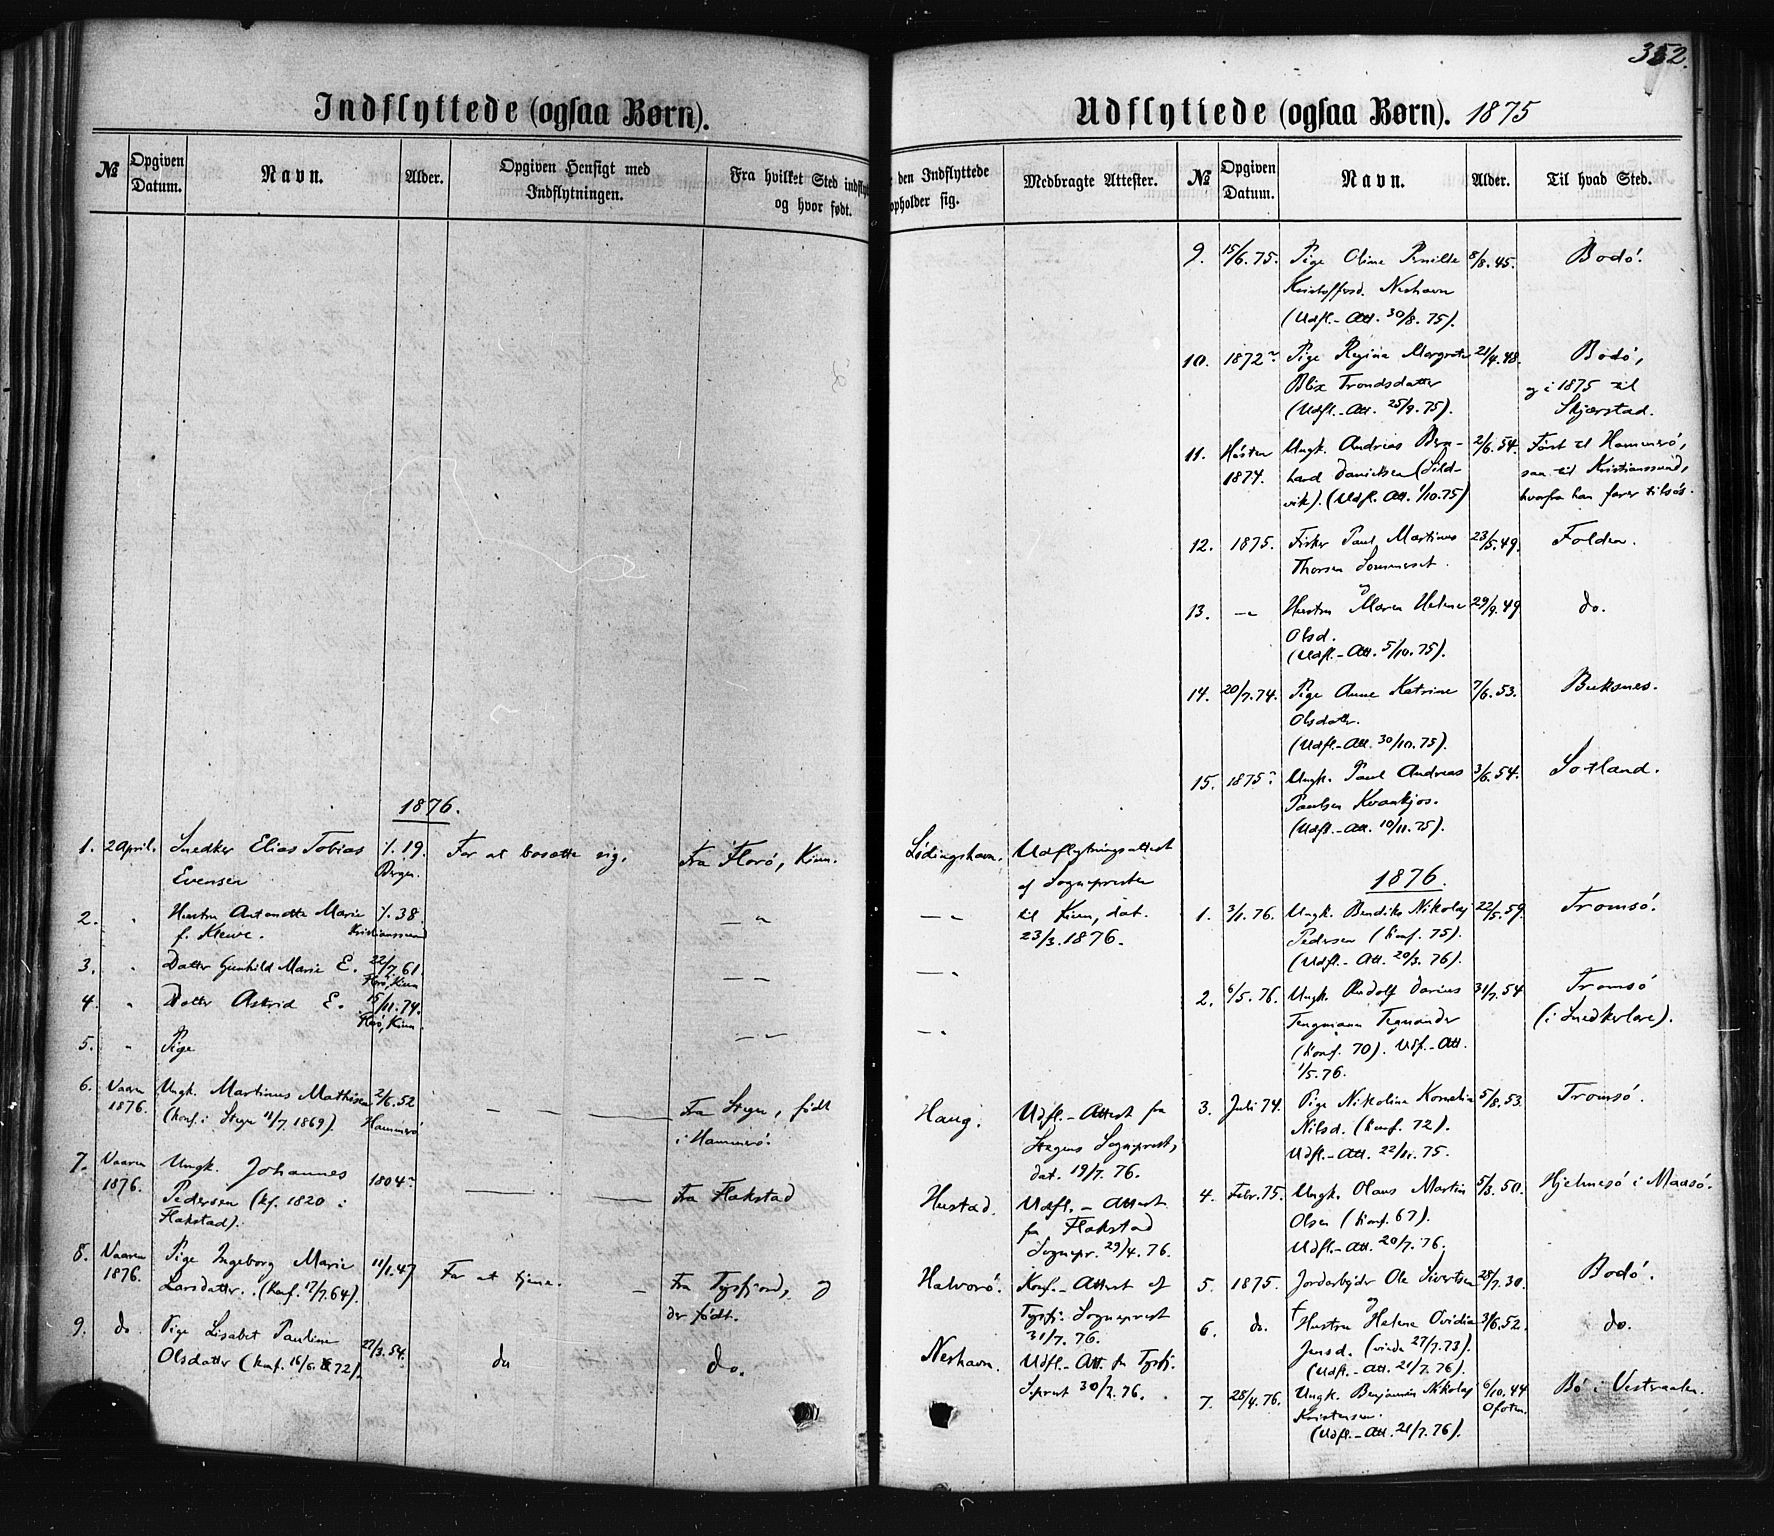 352.
Indflyttede (ogsaa Børn).
№
Opgiven Datum.
Navn.
Alder.
Opgiven Hensigt med Indflytningen.
Fra hvilket Sted indfly
og hvor født.
den Indflyttede
opholder sig.
Medbragte Attester.
1876.
1. 2 April. Snedker Elias Tobias 19. For at bosætte sig. Fra Florö, Kinn. Lödingshavn. Udflytningsattest
Evensen Bergen. af Sognepresten
2. " Hustru Antonette Marie 38. — " — " til Kinn, dat.
f. Klewe. Kristianssund 23/3.1876.
3. " Datter Gunhild Marie E. 22/7.61. — — — "
Florö, Kinn
4. " Datter Astrid E. 15/11.74. — " — "
Florö, Kinn.
5. " Pige
6. Vaaren Ungk. Martinus Mathisen 2/6.52 — — — Fra Stegen, født Haug. Udfl.-Attest fra
1876. (konf. i Stegen 11/7 1869). Hammerö i Hammerö. Stegens Sogneprest,
dat. 19/7. 76.
7. Vaaren Ungk. Johannes 1804 — — Fra Flakstad Hustad. Udfl.-Attest
1876. Pedersen (kf. 1820 i fra Flakstad
Flakstad). Sognepr. 29/4. 76.
8. Vaaren Pige Ingeborg Marie 11/1.47 For at tjene. Fra Tysfjord, og Halvorö. Konf.-Attest af
1876. Larsdatter. (konf. 17/7.64). der født. Tysfj. Sogneprest
31/7. 76.
9. do. Pige Lisabet Pauline 27/3.54. do do. Neshavn. Udfl.-Att. fra Tysfj.
Olsdatter (konf. 16/6. 72). S.prest 30/7. 76.
Udflyttede (ogsaa Børn). 1875
№
Opgiven Datum.
Navn.
Alder.
Til hvad Sted.
9. 15/6.75. Pige Oline Pernille 8/8.45. Bodö.
Kristoffersd. Neshavn
(Udfl.-Att. 30/8.75).
10. 1872 Pige Regina Margrete 21/4.48. Bodö,
Blix Trondsdatter og i 1875 til
(Udfl.-Att. 25/9.75). Skjærstad.
11. Hösten Ungk. Andreas Bern- 2/6.54. Först til Hammerö,
1874. hard Danielsen (Sild- saa til Kristianssund,
vik). (Udfl. Att. 1/10.75) hvorfra han farer tilsös.
12. 1875. Fisker Paul Martinus 23/5.49. Folden.
Thorsen Sommerset
og
13. — " Hustru Maren Helene 29/9.49 do.
Olsd.
(Udfl.-Att. 5/10.75).
14. 20/7.74. Pige Anne Katrine 7/6.53. Buksnes.
Olsdatter.
(Udfl.-Att. 30/10.75).
15. 1875? Ungk. Paul Andreas 3/6.54. Sortland.
Paulsen Kvankjos.
(Udfl.-Att. 10/11.75).
1876.
1. 3/1.76. Ungk. Bendiks Nikolaj 22/5.59. Tromsö.
Pedersen (konf. 75).
(Udfl.-Att. 20/3.76).
2. 6/5.76. Ungk. Rudolf Darius 31/7.54 Tromsö
Tengmann Tegnander (i Snedkerlære).
(konf. 70). Udf.-Att.
1/5.76.
3. Juli 74. Pige Nikoline Kornelia 5/8.53. Tromsö.
Nilsd. (konf. 72).
Udfl.-Att. 22/11. 75.
4. Febr.75. Ungk. Olaus Martin 5/3.50. Hjelmesö i Maasö.
Olsen (konf. 67).
Udfl.-Att. 20/7.76.
5. 1875. Jordarbejder Ole Sivertsen 28/7.30. Bodö.
og
6. do. Hustru Helene Ovidia 3/6.52. do.
Jensd. (viede 27/7.73).
(Udfl.-Att. 21/7.76).
7. 28/4.76. Ungk. Benjamin Nikolaj 6/10.44 Bö i Vestraalen.
Kristensen. Ofoten.
(Udfl.-Att. 21/7.76).